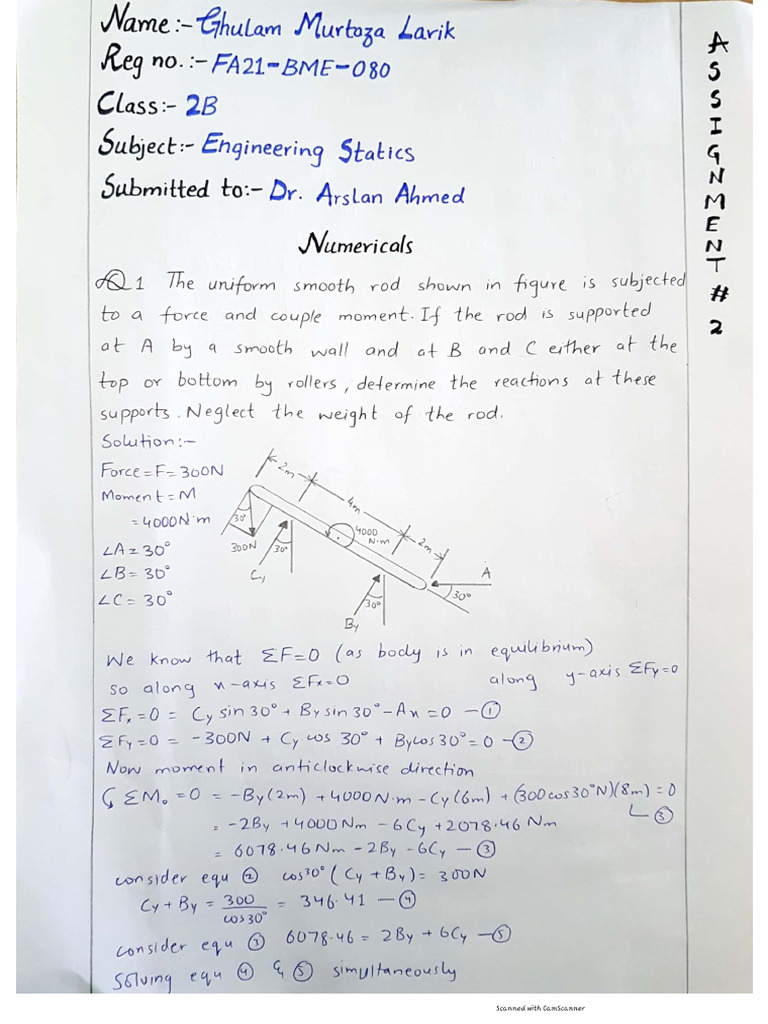 Name:- Ghulam Murtoza Larik
Reg no.:- FA21-BME-080
Class:- 2B
Subject:- Engineering Statics
Submitted to:- Dr. Arslan Ahmed
ASSIGNMENT # 2
Numericals
Q1 The uniform smooth rod shown in figure is subjected
to a force and couple moment. If the rod is supported
at A by a smooth wall and at B and C either at the
top or bottom by rollers, determine the reactions at these
supports. Neglect the weight of the rod.
Solution:-
Force = F = 300N
Moment = M
= 4000N·m
∠A = 30°
∠B = 30°
∠C = 30°
2m
4m
2m
30°
300N
30°
4000
N·m
Cy
A
30°
30°
By
We know that ΣF=0 (as body is in equilibrium)
so along x-axis ΣFx=0 along y-axis ΣFy=0
ΣFx=0 = Cy sin30° + By sin30° - Ax = 0 - ①
ΣFy=0 = -300N + Cy cos 30° + By cos30° = 0 - ②
Now moment in anticlockwise direction
ΣMo = 0 = -By(2m) + 4000N·m - Cy(6m) + (300cos30°N)(8m) = 0
③
= -2By + 4000Nm - 6Cy + 2078.46 Nm
= 6078.46Nm - 2By - 6Cy - ③
consider equ ② cos30° (Cy + By) = 300N
Cy + By = 300/cos30° = 346.41 - ④
consider equ ③ 6078.46 = 2By + 6Cy - ⑤
Solving equ ④ & ⑤ simultaneously
Scanned with CamScanner